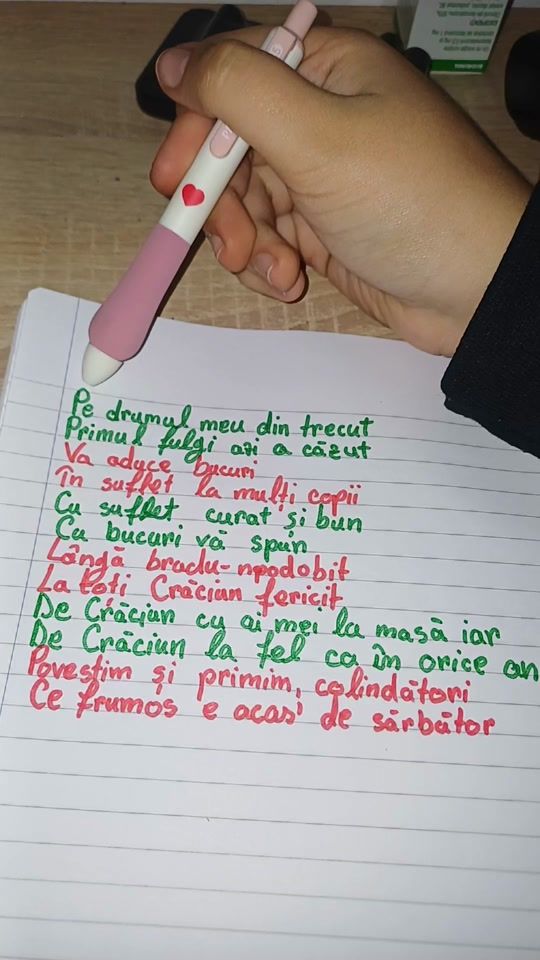 Pe drumul meu din trecut
Primul fulgi azi a căzut
Va aduce bucuri
În suflet la mulți copii
Cu suflet curat și bun
Cu bucuri vă spun
Lângă bradu-npodobit
La toti Crăciun fericit
De Crăciun cu ai mei la masă iar
De Crăciun la fel ca în orice an
Povestim și primim, colindători
Ce frumos e acas' de sărbător